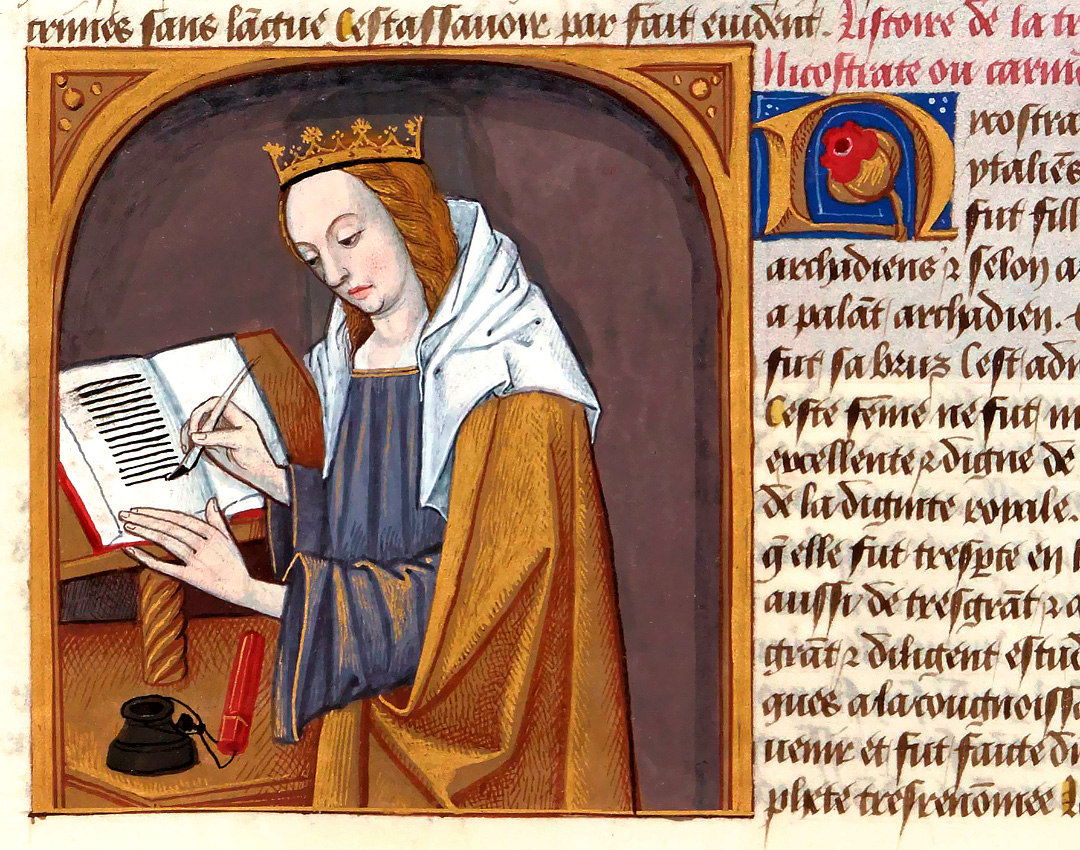 trinēs sans lāgue Cestassavoir par fait euident. Listoire de la
Nicostrate ou carm
Nicostra
ytaliēs
fut fill
archadiens ⁊ selon a
a palāt archadien.
fut sabruz Cest adi
Ceste fēme ne fut m
excellente ⁊ digne de
de la dignite royale.
q̄ elle fut tresp̱te en
aussi de tresgrāt ⁊ a
grāt ⁊ diligent estud
ques a la congnoissa
uenir et fut faicte di
phete tresrenōmee